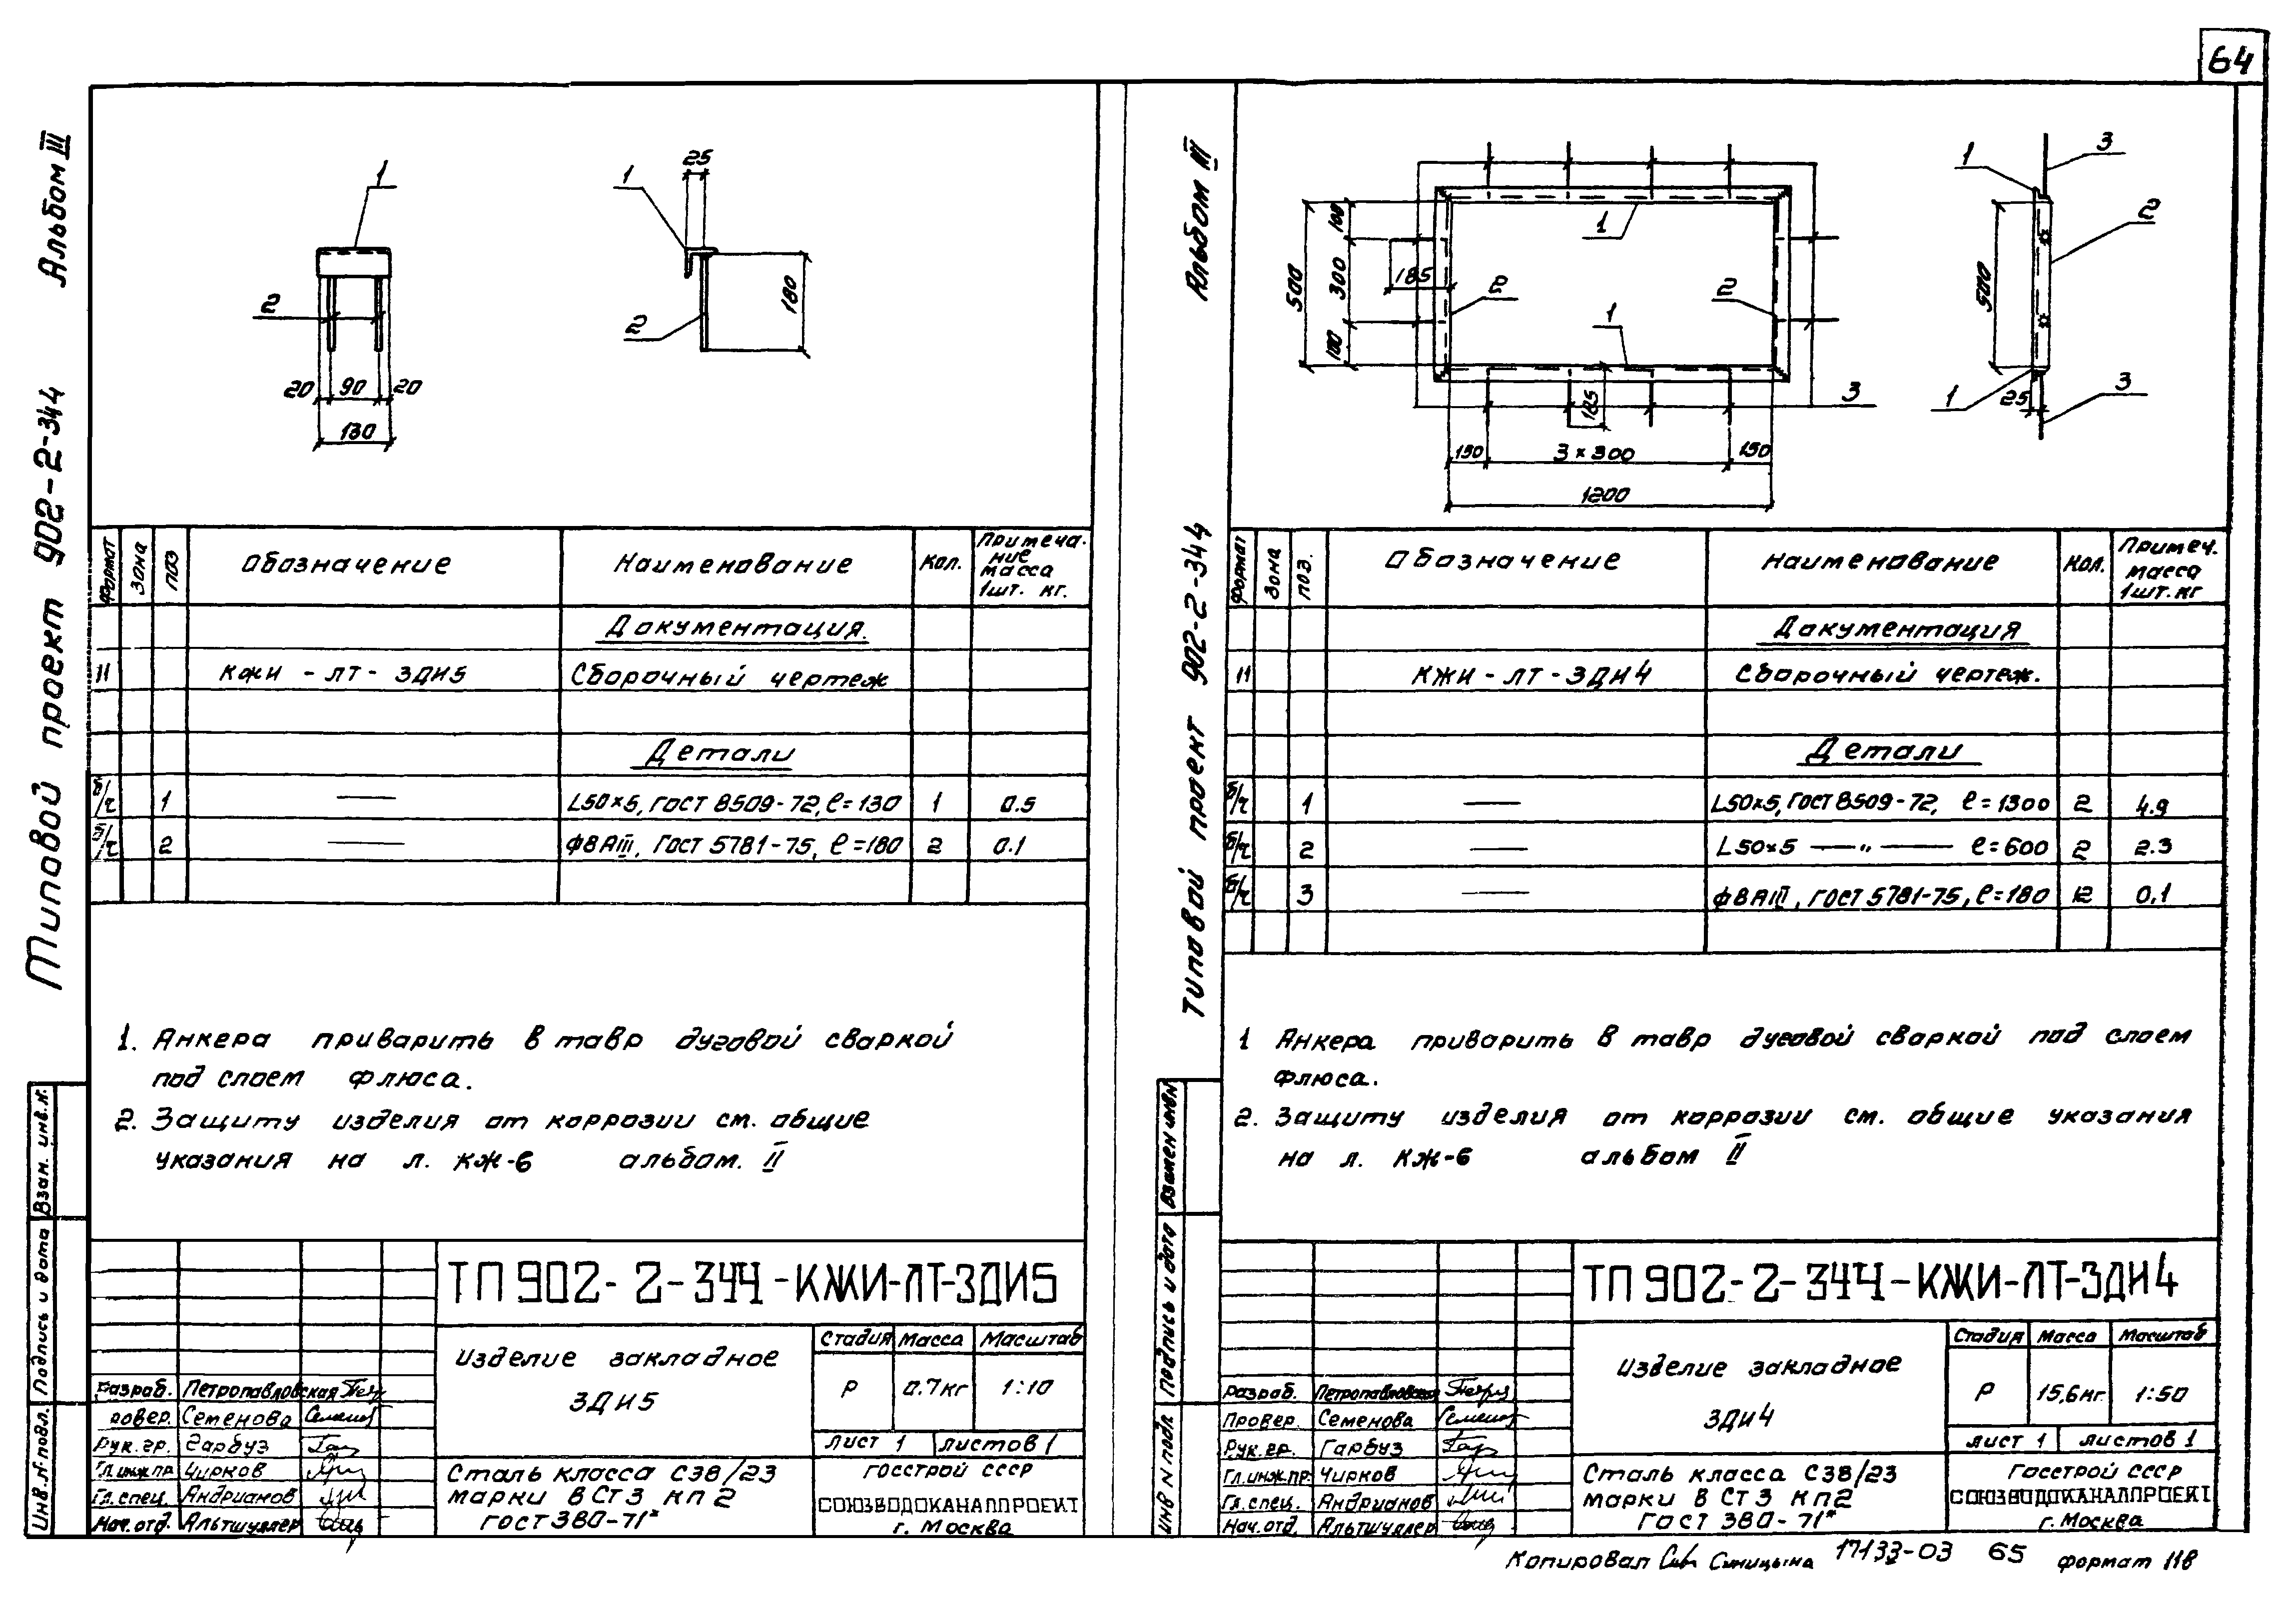 64
Альбом III
Типовой проект 902-2-344
1
2
20 90 20
130
25
1
2
180
Формат Зона Поз Обозначение Наименование Кол. Примеча-
ние
масса
1шт. кг.
Документация.
11 КЖИ - ЛТ - ЗДИ5 Сборочный чертеж
Детали
б/ч 1 — L50×5, ГОСТ 8509-72, ℓ=130 1 0.5
б/ч 2 — ф8АIII, ГОСТ 5781-75, ℓ=180 2 0.1
1. Анкера приварить в тавр дуговой сваркой
под слоем флюса.
2. Защиту изделия от коррозии см. общие
указания на л. КЖ-6 альбом. II
Взам. инв.N.
Подпись и дата
Инв.N подл.
ТП 902-2-344-КЖИ-ЛТ-ЗДИ5
Изделие закладное
ЗДИ5
Стадия Масса Масштаб
Р 0.7кг 1:10
Лист 1 Листов 1
Разраб. Петропавловская
ровер. Семенова
Рук.гр. Гарбуз
Гл.инж.пр Чирков
Гл.спец. Андрианов
Нач.отд. Альтшуллер
Сталь класса С38/23
марки ВСт3 кп2
ГОСТ 380-71*
Госстрой СССР
СОЮЗВОДОКАНАЛПРОЕКТ
г. Москва
Альбом III
Типовой проект 902-2-344
1
2
2
1
3
100
300
100
500
185
185
150 3×300 150
1200
1
3
2
500
1
25
3
Формат Зона Поз. Обозначение Наименование Кол. Примеч.
масса
1шт. кг
Документация
11 КЖИ - ЛТ - ЗДИ4 Сборочный чертеж.
Детали
б/ч 1 — L50×5, ГОСТ 8509-72, ℓ=1300 2 4.9
б/ч 2 — L50×5 —„— ℓ=600 2 2.3
б/ч 3 — ф8АIII, ГОСТ 5781-75, ℓ=180 12 0,1
1 Анкера приварить в тавр дуговой сваркой под слоем
флюса.
2. Защиту изделия от коррозии см. общие указания
на л. КЖ-6 альбом II
Взамен инв.N
Подпись и дата
Инв N подл
ТП 902-2-344-КЖИ-ЛТ-ЗДИ4
Изделие закладное
ЗДИ4
Стадия Масса Масштаб
Р 15,6кг. 1:50
Лист 1 Листов 1
Разраб. Петропавловская
Провер. Семенова
Рук.гр. Гарбуз
Гл.инж.пр. Чирков
Гл.спец. Андрианов
Нач.отд. Альтшуллер
Сталь класса С38/23
марки ВСт3 кп2
ГОСТ 380-71*
Госстрой СССР
СОЮЗВОДОКАНАЛПРОЕКТ
г. Москва
Копировал Синицына 17133-03 65 формат 11в